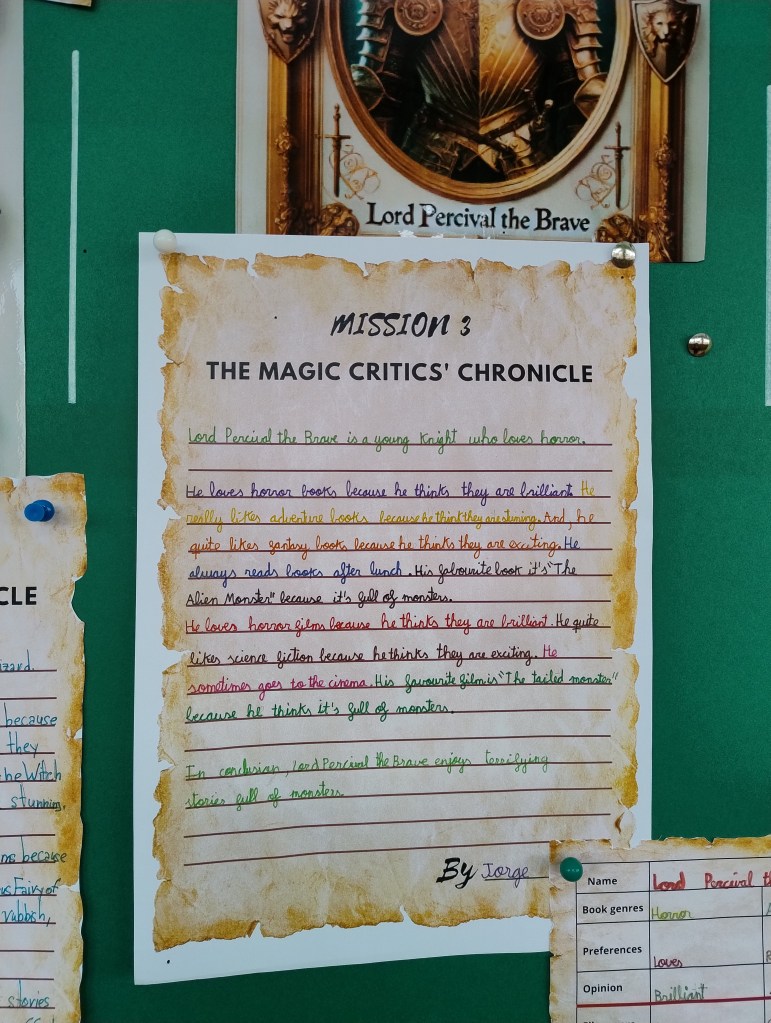 Lord Percival the Brave
MISSION 3
THE MAGIC CRITICS' CHRONICLE
Lord Percival the Brave is a young Knight who loves horror.
He loves horror books because he thinks they are brilliant. He
really likes adventure books because he think they are stuning. And, he
quite likes fantasy books because he thinks they are exciting. He
always reads books after lunch. His fabourite book it's "The
Alien Monster" because it's full of monsters.
He loves horror films because he thinks they are brilliant. He quite
likes science fiction because he thinks they are exciting. He
sometimes goes to the cinema. His favourite film is "The tailed monster"
because he thinks it's full of monsters.
In conclusian, Lord Percival the Brave enjoys terrifying
stories full of monsters.
By Jorge
CLE
izard.
because
they
he Witch
stunning,
ms because
us Fairy of
rubbsh,
stories
Name Lord Percival th
Book genres Horror
Preferences Loves
Opinion Brilliant